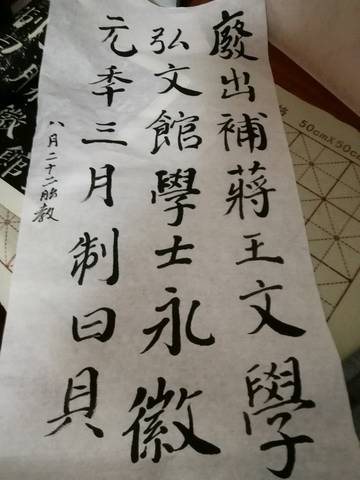 廢出補蔣王文學
弘文館學士永徽
元季三月制曰具
八月二十二
50cm×50c